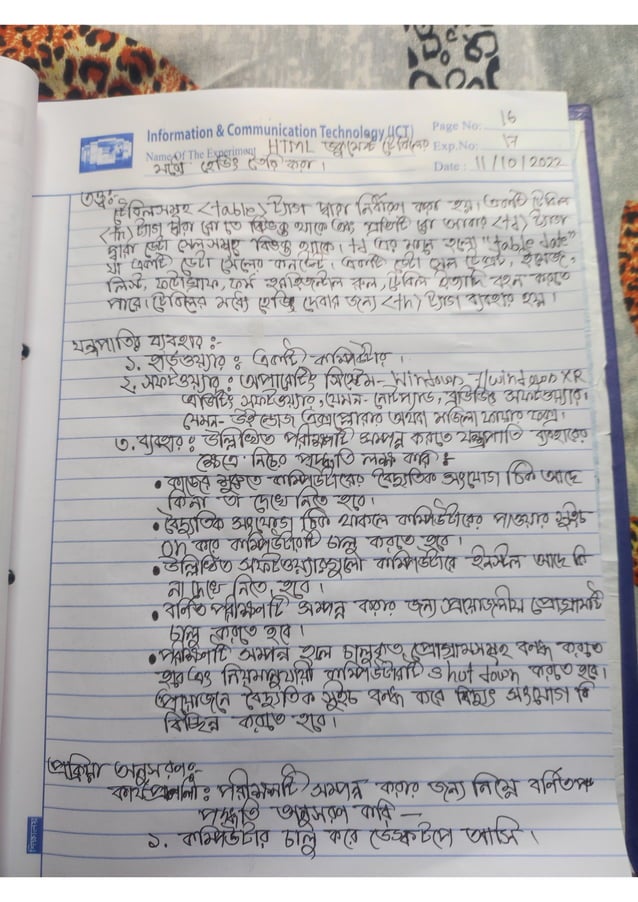 Information & Communication Technology (ICT) Page No: 16
Name Of The Experiment HTML ডকুমেন্টে টেবিলের Exp.No: 17
মধ্যে হেডিং তৈরি করা। Date: 11/10/2022
তত্ত্ব:-
টেবিলসমূহ <table> ট্যাগ দ্বারা নির্ধারণ করা হয়। একটি টেবিল
ট্যাগ দ্বারা রো তে বিভক্ত থাকে এবং প্রতিটি রো আবার <td> ট্যাগ
দ্বারা ডেটা সেলসমূহে বিভক্ত থাকে। td এর মানে হলো "table date"
যা একটি ডেটা সেলের কনটেন্ট। একটি ডেটা সেল টেক্সট, ইমেজ,
লিস্ট, ফটোগ্রাফ, ফর্ম, হরাইজন্টাল রুল, টেবিল ইত্যাদি বহন করতে
পারে। টেবিলের মধ্যে হেডিং দেবার জন্য <th> ট্যাগ ব্যবহার হয়।
যন্ত্রপাতির ব্যবহার:-
১. হার্ডওয়্যার: একটি কম্পিউটার।
২. সফটওয়্যার: অপারেটিং সিস্টেম- Windows-7/windows XR
এডিটিং সফটওয়্যার, যেমন- নোটপ্যাড, ব্রাউজিং সফটওয়্যার।
যেমন- উইন্ডোজ এক্সপ্লোরার অথবা মজিলা ফায়ার ফক্স।
৩. ব্যবহার: উল্লিখিত পরীক্ষণটি সম্পন্ন করতে যন্ত্রপাতি ব্যবহারের
ক্ষেত্রে নিচের পদ্ধতি লক্ষ করি:-
• কাজের শুরুতে কম্পিউটারের বৈদ্যুতিক সংযোগ ঠিক আছে
কিনা তা দেখে নিতে হবে।
• বৈদ্যুতিক সংযোগ ঠিক থাকলে কম্পিউটারের পাওয়ার সুইচ
on করে কম্পিউটারটি চালু করতে হবে।
• উল্লিখিত সফটওয়্যারগুলো কম্পিউটারে ইনস্টল আছে কি
না দেখে নিতে হবে।
• বর্নিত পরীক্ষণটি সম্পন্ন করার জন্য প্রয়োজনীয় প্রোগ্রামটি
চালু করতে হবে।
• পরীক্ষণটি সম্পন্ন হলে চালুকৃত প্রোগ্রামসমূহ বন্ধ করতে
হবে এবং নিয়মানুযায়ী কম্পিউটারটি shut down করতে হবে।
প্রয়োজনে বৈদ্যুতিক সুইচ বন্ধ করে বিদ্যুৎ সংযোগ
বিচ্ছিন্ন করতে হবে।
প্রক্রিয়া অনুসরণ:-
কার্যপ্রণালী: পরীক্ষণটি সম্পন্ন করার জন্য নিম্নে বর্নিত
পদ্ধতি অনুসরণ করি —
১. কম্পিউটার চালু করে ডেস্কটপে আসি।